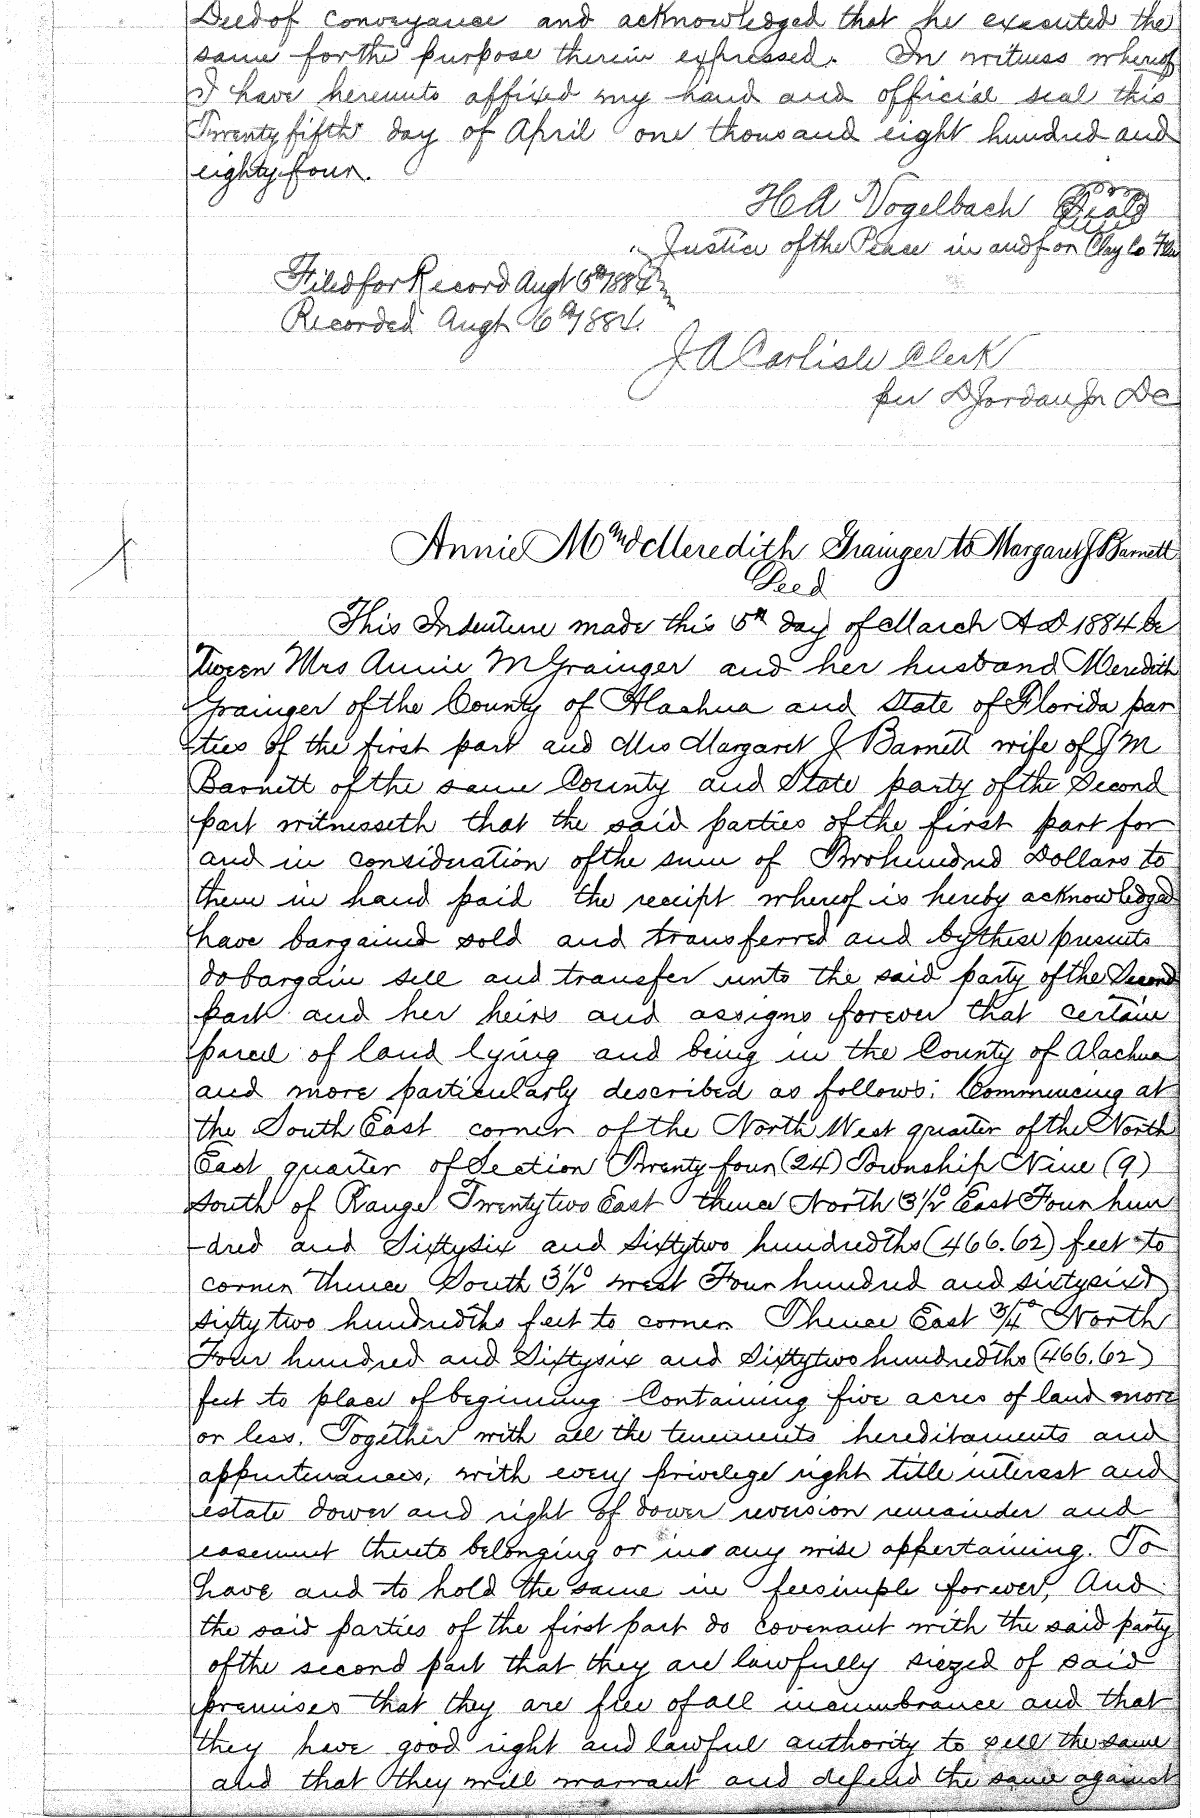 Deed of conveyance and acknowledged that he executed the
same for the purpose therein expressed. In witness whereof
I have hereunto affixed my hand and official seal this
Twenty fifth day of April one thousand eight hundred and
eighty four.
H A Vogelbach Seal
Justice of the Peace in and for Clay Co Fla
Filed for Record Augt 6th 1884
Recorded Augt 6th 1884.
J A Carlisle Clerk
per D Jordan Jr DC
Annie M and Meredith Grainger to Margaret J Barnett
Deed
This Indenture made this 5th day of March A D 1884 be
tween Mrs Annie M Grainger and her husband Meredith
Grainger of the County of Alachua and State of Florida par
ties of the first part and Mrs Margaret J Barnett wife of J M
Barnett of the same County and State party of the Second
part witnesseth that the said parties of the first part for
and in consideration of the sum of Two hundred Dollars to
them in hand paid the receipt whereof is hereby acknowledged
have bargained sold and transferred and by these presents
do bargain sell and transfer unto the said party of the Second
part and her heirs and assigns forever that certain
parcel of land lying and being in the County of Alachua
and more particularly described as follows: Commencing at
the South East corner of the North West quarter of the North
East quarter of Section Twenty four (24) Township Nine (9)
South of Range Twenty two East thence North 3 1/2° East Four hun
-dred and Sixty six and Sixty two hundredths (466.62) feet to
corner thence South 3 1/2° west Four hundred and sixty six &
sixty two hundredths feet to corner Thence East 3/4° North
Four hundred and Sixty six and Sixty two hundredths (466.62)
feet to place of beginning Containing five acres of land more
or less. Together with all the tenements hereditaments and
appurtenances, with every privelege right title interest and
estate dower and right of dower reversion remainder and
easement thereto belonging or in any wise appertaining. To
have and to hold the same in feesimple forever, And
the said parties of the first part do covenant with the said party
of the second part that they are lawfully siezed of said
premises that they are free of all incumbrance and that
they have good right and lawful authority to sell the same
and that they will warrant and defend the same against